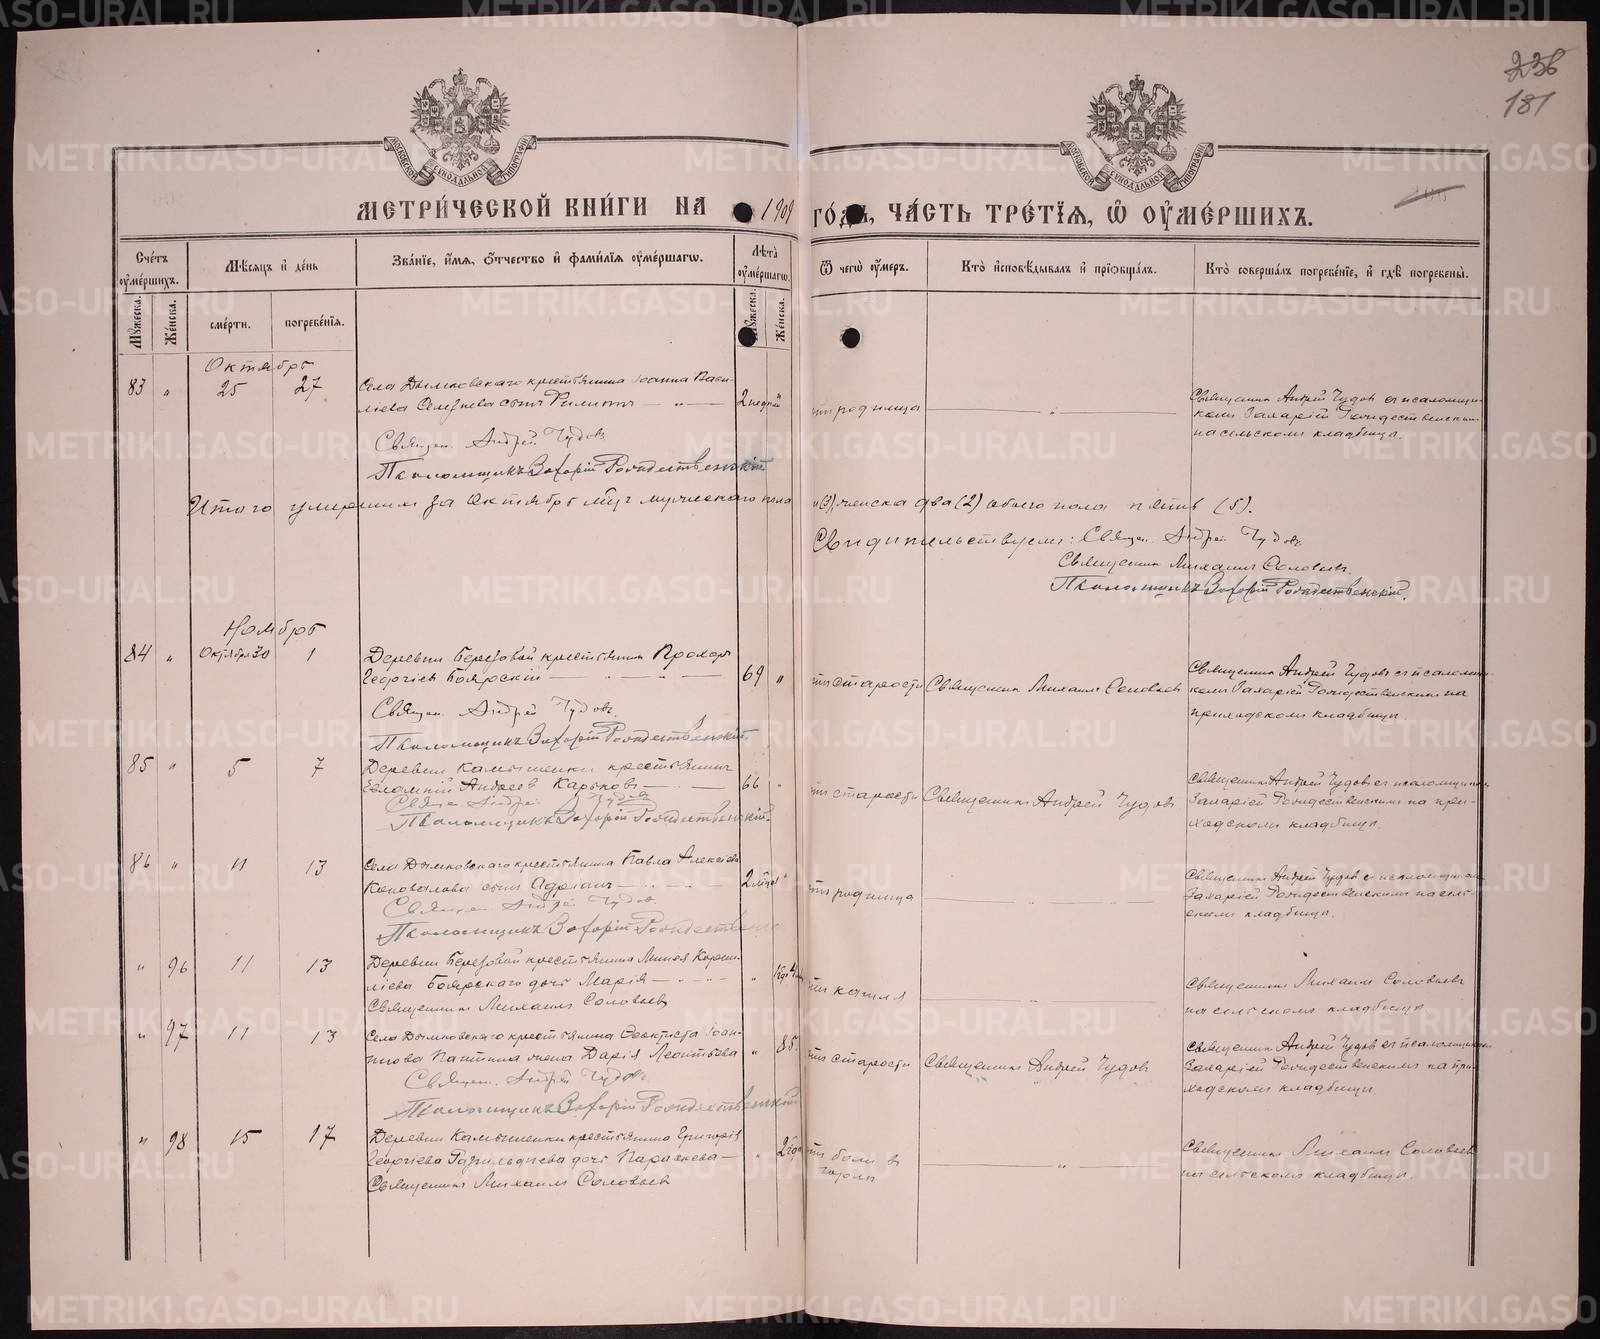 236
181
МОСКОВСКОЙ СѴНОДАЛЬНОЙ ТИПОГРАФІИ
МОСКОВСКОЙ СѴНОДАЛЬНОЙ ТИПОГРАФІИ
МЕТРИ́ЧЕСКОЙ КНИ́ГИ НА 1909 ГО́ДЪ, ЧА́СТЬ ТРЕ́ТІѦ, Ѡ҆ ОУ҆МЕ́РШИХЪ.
Счетъ оумершихъ.
Мѣсяцъ и день
Званіе, имя, отчество и фамилія оумершагѡ.
Лѣта оумершагѡ.
Ѿ чегѡ оумеръ.
Кто исповѣдывалъ и пріобщалъ.
Кто совершалъ погребеніе, и гдѣ погребены.
Мужеска.
Женска.
смерти.
погребенія.
Мужеска.
Женска.
Октябрь
83 " 25 27 Села Дымковскаго крестьянина Іоанна Васи-
ліева Селезнева сынъ Филиппъ — " — 2 недѣли "
отъ родимца — " —
Священника Андрей Чудовъ съ псаломщи-
комъ Захаріей Рождественскимъ
на сельскомъ кладбищѣ.
Священ. Андрей Чудовъ
Псаломщикъ Захарій Рождественскій
Итого умершихъ за Октябрь м-цъ мужескаго пола (3), женска два (2) обоего пола пять (5).
Свидѣтельствуемъ: Священ. Андрей Чудовъ
Священникъ Михаилъ Соловьевъ
Псаломщикъ Захарій Рождественскій.
Ноябрь
84 " Октября 30 1 Деревни Березовой крестьянинъ Прохоръ
Георгіевъ Боярскій — 69 "
отъ старости
Священникъ Михаилъ Соловьевъ
Священникъ Андрей Чудовъ съ псаломщи-
комъ Захаріей Рождественскимъ на
приходскомъ кладбищѣ.
Священ. Андрей Чудовъ
Псаломщикъ Захарій Рождественскій.
85 " 5 7 Деревни Камышенки крестьянинъ
Евлампій Андреевъ Карьковъ — 66 "
отъ старости
Священникъ Андрей Чудовъ
Священникъ Андрей Чудовъ съ псаломщикомъ
Захаріей Рождественскимъ на при-
ходскомъ кладбищѣ.
Священ. Андрей Чудовъ
Псаломщикъ Захарій Рождественскій.
86 " 11 13 Села Дымковскаго крестьянина Павла Алексіева
Коновалова сынъ Адріанъ — 2 мѣсяца "
отъ родимца
Священникъ Андрей Чудовъ съ псаломщикомъ
Захаріей Рождественскимъ на сель-
скомъ кладбищѣ.
Священ. Андрей Чудовъ
Псаломщикъ Захарій Рождественскій
" 96 11 13 Деревни Березовой крестьянина
Боярскаго дочь Марія — "
отъ кашля
Священникъ Михаилъ Соловьевъ
на сельскомъ кладбищѣ
Священникъ Михаилъ Соловьевъ
" 97 11 13 Села Дымковскаго крестьянина Ѳеоктиста Іоан-
нова Пантина жена Дарія Леонтьева " 85.
отъ старости
Священникъ Андрей Чудовъ
Священникъ Андрей Чудовъ съ псаломщикомъ
Захаріей Рождественскимъ на при-
ходскомъ кладбищѣ.
Священ. Андрей Чудовъ
Псаломщикъ Захарій Рождественскій
" 98 15 17 Деревни Камышенки крестьянина Григорія
Георгіева дочь Параскева — " 2 года
отъ боли въ
горлѣ
Священникъ Михаилъ Соловьевъ
на сельскомъ кладбищѣ.
Священникъ Михаилъ Соловьевъ
METRIKI.GASO-URAL.RU